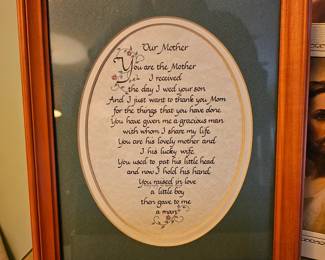 Our Mother
You are the Mother
I received
the day I wed your son
And I just want to thank you Mom
for the things that you have done.
You have given me a gracious man
with whom I share my life
You are his lovely mother and
I his lucky wife.
You used to pat his little head
and now I hold his hand.
You raised in love
a little boy
then gave to me
a man